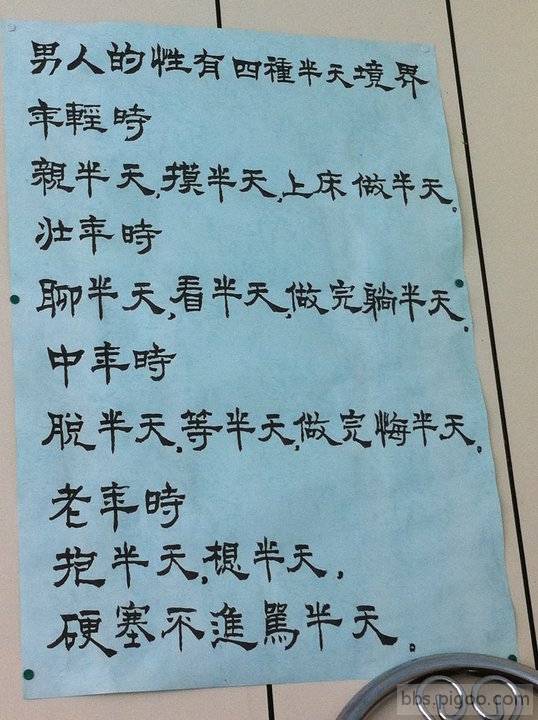 男人的性有四種半天境界
年輕時
親半天,摸半天,上床做半天。
壯年時
聊半天,看半天,做完躺半天。
中年時
脫半天,等半天,做完悔半天。
老年時
抱半天,想半天,
硬塞不進罵半天。
bbs.pigoo.com